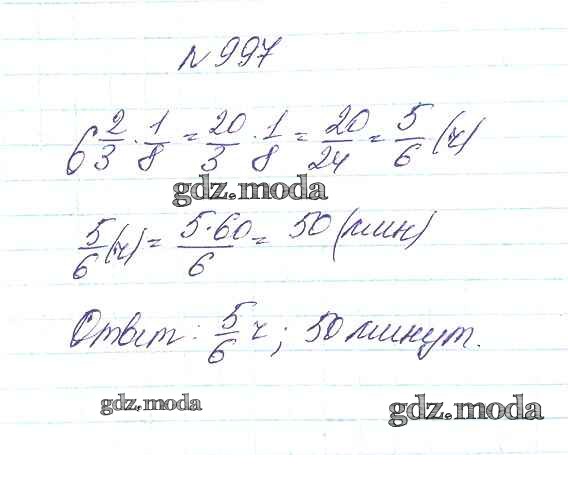 № 997
6 2/3 · 1/8 = 20/3 · 1/8 = 20/24 = 5/6 (ч)
gdz.moda
5/6 (ч) = 5·60/6 = 50 (мин)
Ответ: 5/6 ч; 50 минут.
gdz.moda
gdz.moda